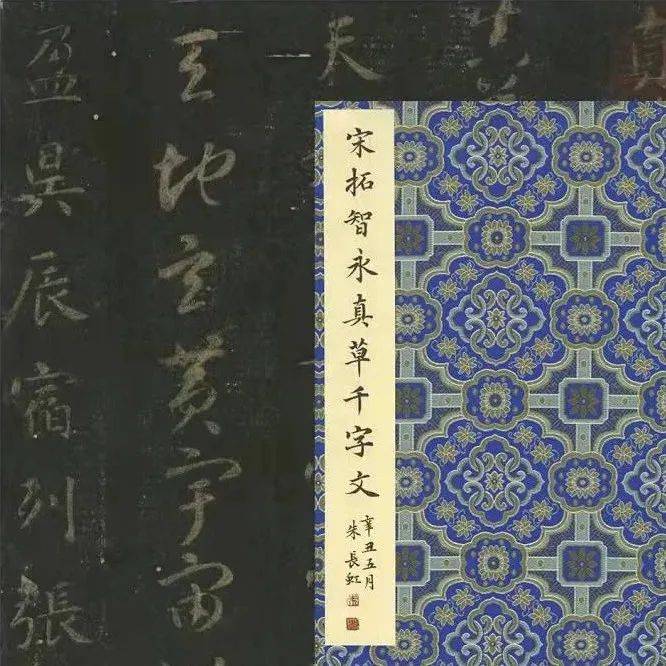 宋拓智永真草千字文
辛丑五月
朱長虹
真
天
天地玄黄宇宙
盈昃辰宿列張